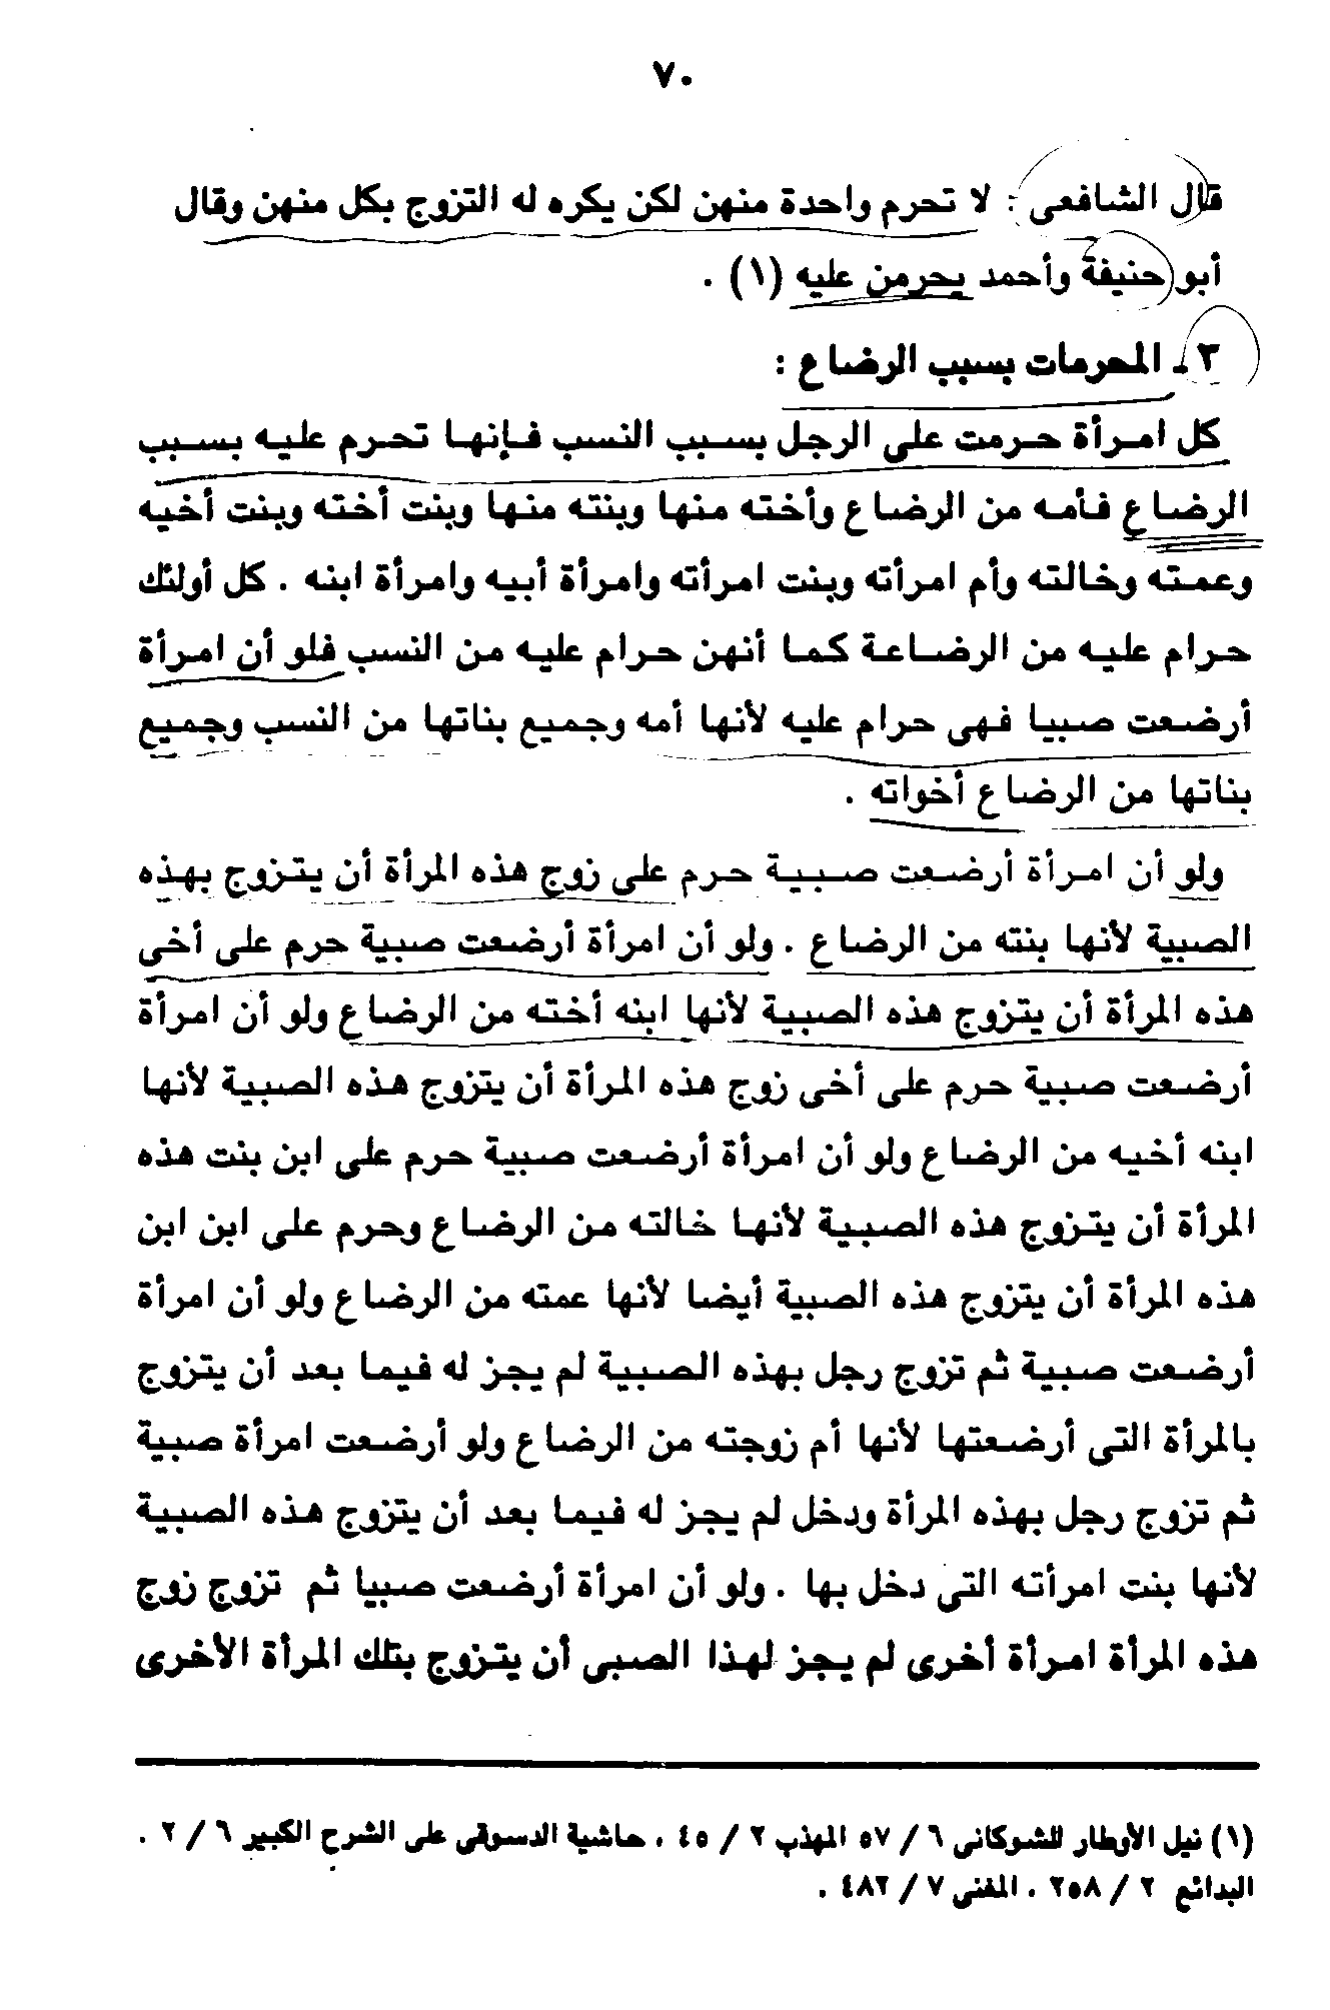 ٧٠
قال الشافعى : لا تحرم واحدة منهن لكن يكره له التزوج بكل منهن وقال
أبو حنيفة وأحمد يحرمن عليه (١) .
٣ ـ المحرمات بسبب الرضاع :
كل امرأة حرمت على الرجل بسبب النسب فإنها تحرم عليه بسبب
الرضاع فأمه من الرضاع وأخته منها وبنته منها وبنت أخته وبنت أخيه
وعمته وخالته وأم امرأته وبنت امرأته وامرأة أبيه وامرأة ابنه . كل أولئك
حرام عليه من الرضاعة كما أنهن حرام عليه من النسب فلو أن امرأة
أرضعت صبيا فهى حرام عليه لأنها أمه وجميع بناتها من النسب وجميع
بناتها من الرضاع أخواته .
ولو أن امرأة أرضعت صبية حرم على زوج هذه المرأة أن يتزوج بهذه
الصبية لأنها بنته من الرضاع . ولو أن امرأة أرضعت صبية حرم على أخى
هذه المرأة أن يتزوج هذه الصبية لأنها ابنه أخته من الرضاع ولو أن امرأة
أرضعت صبية حرم على أخى زوج هذه المرأة أن يتزوج هذه الصبية لأنها
ابنه أخيه من الرضاع ولو أن امرأة أرضعت صبية حرم على ابن بنت هذه
المرأة أن يتزوج هذه الصبية لأنها خالته من الرضاع وحرم على ابن ابن
هذه المرأة أن يتزوج هذه الصبية أيضا لأنها عمته من الرضاع ولو أن امرأة
أرضعت صبية ثم تزوج رجل بهذه الصبية لم يجز له فيما بعد أن يتزوج
بالمرأة التى أرضعتها لأنها أم زوجته من الرضاع ولو أرضعت امرأة صبية
ثم تزوج رجل بهذه المرأة ودخل لم يجز له فيما بعد أن يتزوج هذه الصبية
لأنها بنت امرأته التى دخل بها . ولو أن امرأة أرضعت صبيا ثم تزوج زوج
هذه المرأة امرأة أخرى لم يجز لهذا الصبى أن يتزوج بتلك المرأة الأخرى
(١) نيل الأوطار للشوكانى ٦ / ٥٧ المهذب ٢ / ٤٥ ، حاشية الدسوقى على الشرح الكبير ٦ / ٢ .
البدائع ٢ / ٢٥٨ ، المغنى ٧ / ٤٨٢ .